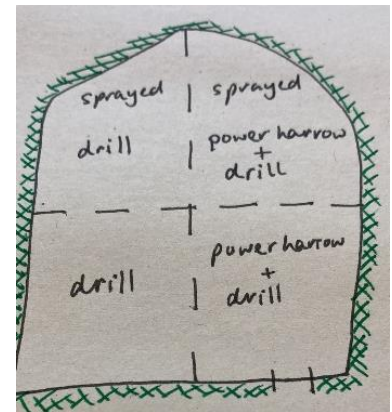 sprayed
drill
sprayed
power harrow
+
drill
drill
power harrow
+
drill